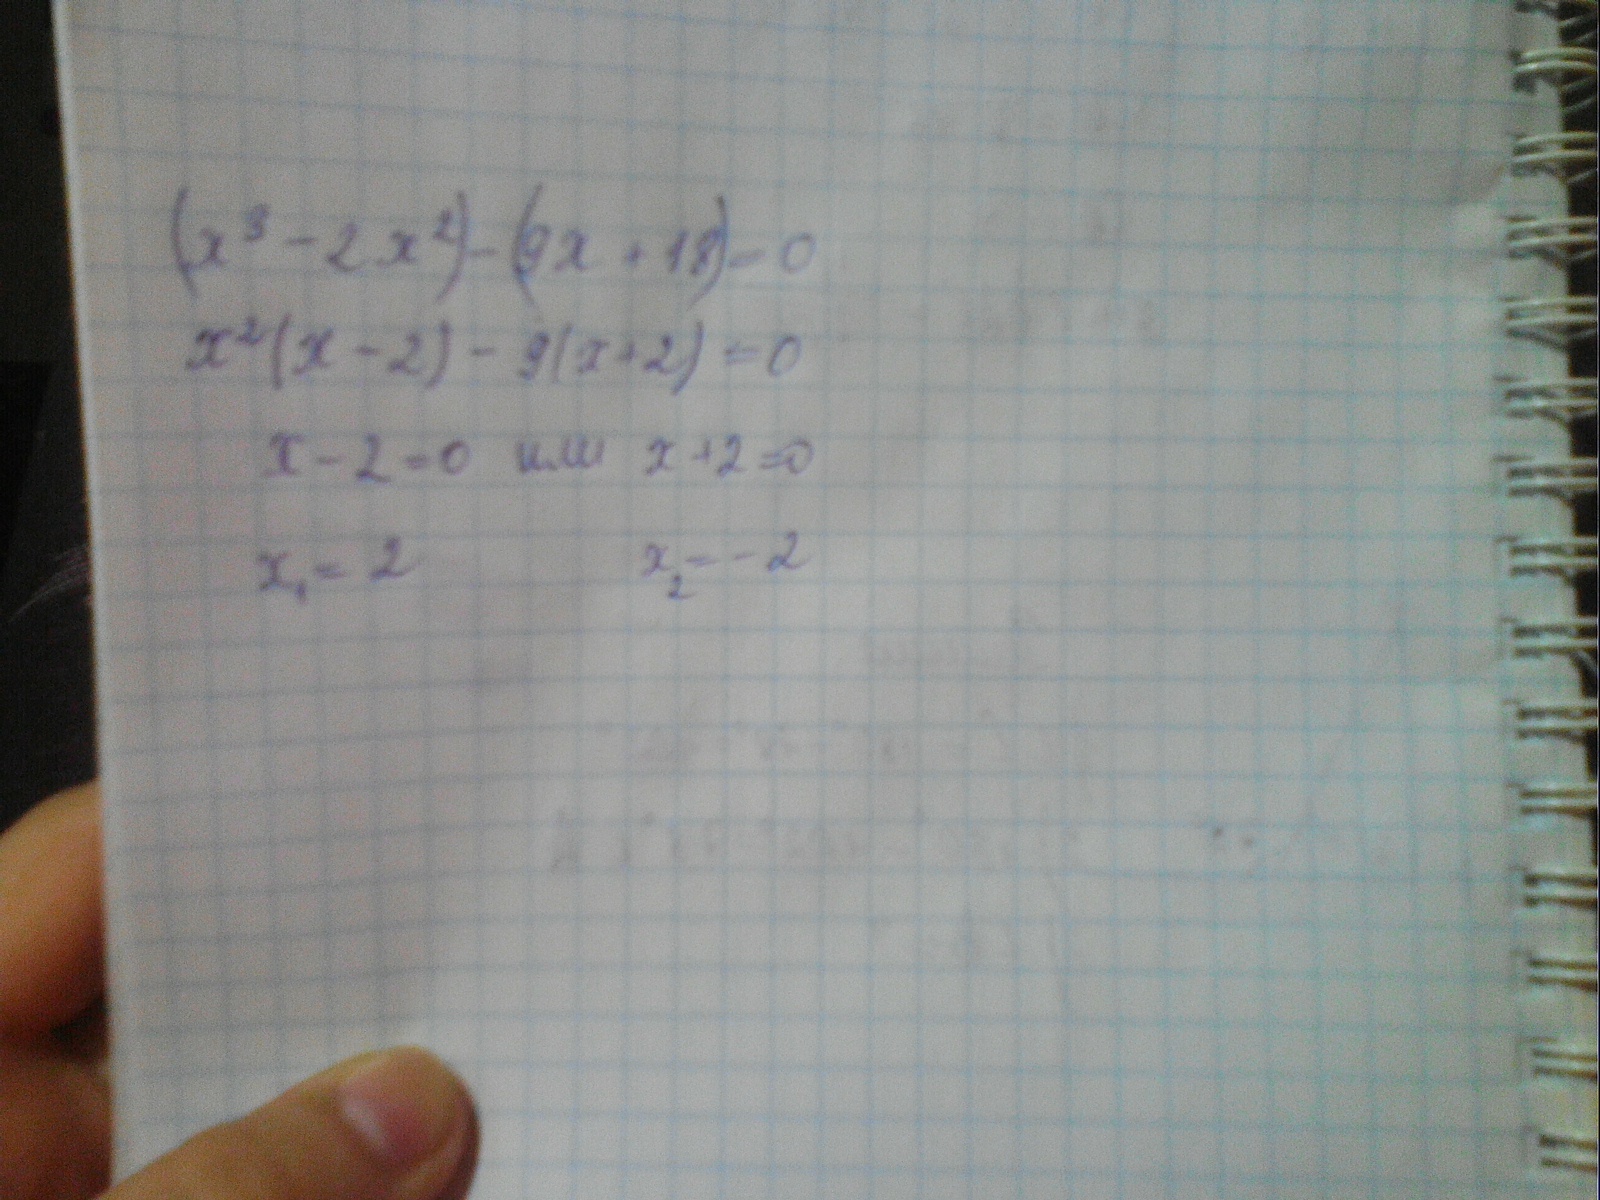 (x³ - 2x²) - (9x + 18) = 0
x²(x - 2) - 9(x + 2) = 0
x - 2 = 0 или x + 2 = 0
x₁ = 2 x₂ = -2